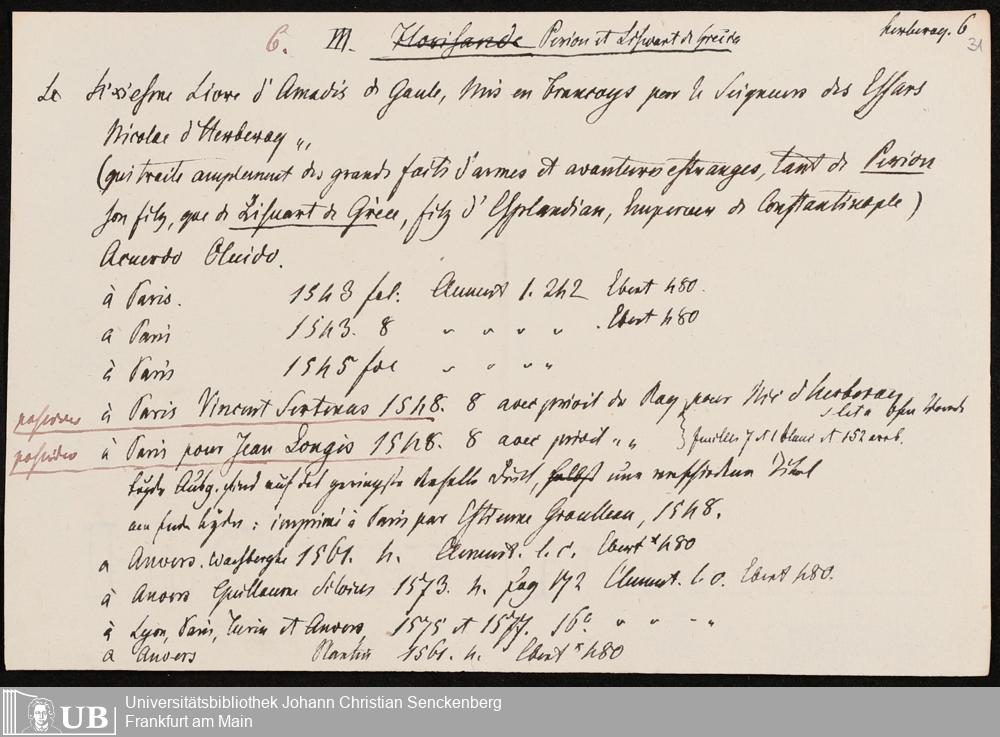 6. III. Florisande Perion et Lisuart de Grecia
herberay. 6
31
Le Sixiesme Livre d'Amadis de Gaule, Mis en francoys par le Seigneur des Essars
Nicolas d'Herberay
(qui traite amplement des grands faits d'armes et avantures estranges, tant de Perion
son filz, que de Lisuart de Grèce, filz d'Esplandian, Empereur de Constantinople)
Acuerdo Oluido.
à Paris. 1543 fol. Clement 1. 242 Ebert 480.
a Paris 1543. 8 " " " " . Ebert 480
à Paris 1545 fol " " " "
à Paris Vincent Sertenas 1548. 8 avec privil du Roy pour Nic d'herberay
à Paris pour Jean Longis 1548. 8 avec privil " " feuilles 7 et 1 blanc et 152
beyde Ausg. sind auf das geringste dieselbe Druck, selbst nur verschiedenen Titel
am Ende beyder : imprimé à Paris par Estienne Groulleau, 1548.
a Anvers. Waesberghe 1561. 4. Clement. l. c. Ebert * 480
à Anvers Guillaume Silvius 1573. 4. pag 172 Clement. l. c. Ebert 480.
à Lyon, Paris, Turin et Anvers, 1575 et 1577. 16° " " - "
a Anvers Plantin 1561. 4. Ebert * 480
UB
Universitätsbibliothek Johann Christian Senckenberg
Frankfurt am Main